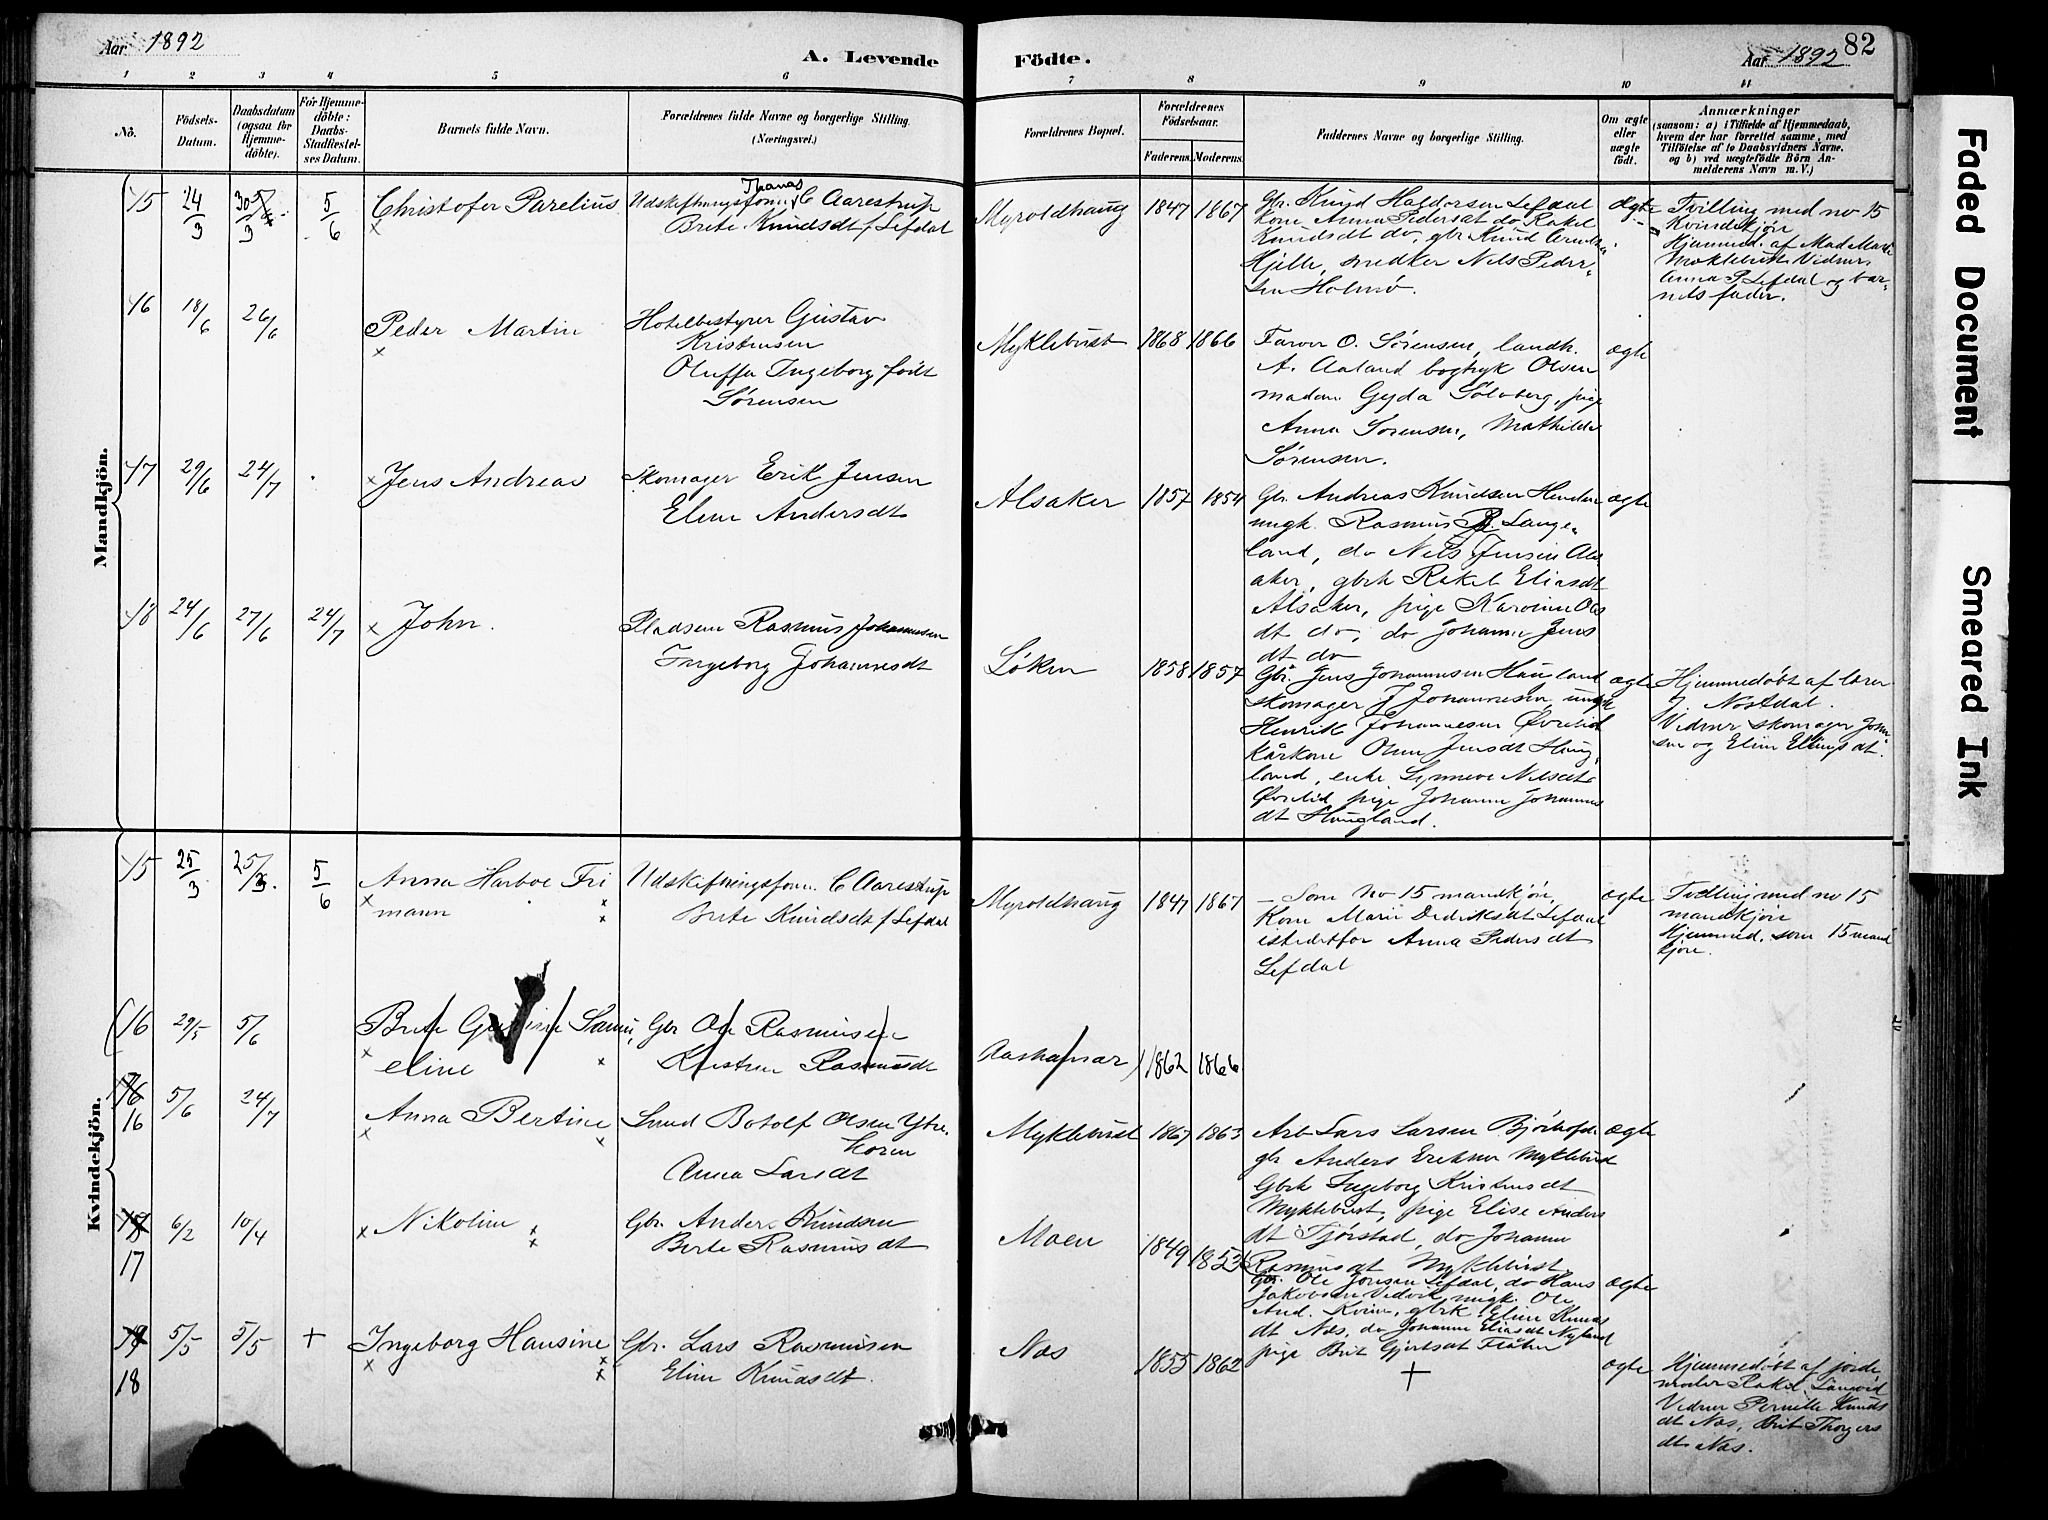 Aar 1892
A. Levende
Födte.
Aar 1892
82
1 2 3 4 5 6 7 8 9 10 11
No.
Födsels-
Datum.
Daabsdatum
(ogsaa for
Hjemme-
döbte).
For Hjemme-
döbte:
Daabs-
Stadfæstel-
ses Datum.
Barnets fulde Navn.
Forældrenes fulde Navne og borgerlige Stilling.
(Næringsvei.)
Forældrenes Bopæl.
Forældrenes
Födselsaar.
Faderens. Moderens.
Faddernes Navne og borgerlige Stilling.
Om ægte
eller
uægte
födt.
Anmærkninger
(saasom: a) i Tilfælde af Hjemmedaab,
hvem der har forrettet samme, med
Tilföielse af to Daabsvidners Navne,
og b) ved uægtefödte Börn An-
melderens Navn m. V.)
Mandkjön.
15 24/3 30/3 5/6
Christofer Parelius
Thomas
Udskiftningsform. C Aarestrup
Brite Knudsdt f Lefdal
Myroldhaug 1847 1867
Gbr. Knud Haldorsen Lefdal
Kone Anna Pedersdt do Rakel
Knudsdt do, gbr Knud
Hjelle, snedker Nels Peder-
sen Holmø.
Ægte
Tvilling med no 15
Kvindekjøn
Hjemmed. af Mad. Marie
Myklebust Vidner
Anna P. Lefdal og bar-
nets fader.
16 18/6 26/6
Peder Martin
Hotelbestyrer Gustav
Kristensen
Oluffa Ingeborg født
Sørensen
Myklebust 1868 1866
Farver O. Sørensen, landh.
A. Aaland bogtryk Olsen
madam Gyda Sølvberg, pige
Anna Sørensen, Mathilde
Sørensen.
ægte
17 29/6 24/7
Jens Andreas
Skomager Erik Jensen
Eline Andersdt
Alsaker 1857 1854
Gbr. Andreas Knudsen Henden
ungk. Rasmus R. Lange-
land, do Nels Jensen Als-
aker, gbrk Rakel Eliasdt
Alsaker, pige Karoline Ols
dt do, do Johanne Jens
dt do
ægte
18 24/6 27/6 24/7
John.
Pladsem Rasmus Johannesen
Ingeborg Johannesdt
Løken 1858 1857
Gbr. Jens Johannesen Haugland
skomager J Johannesen, ungk
Henrik Johannesen Øvrelid
kårkone Oline Jensdt Haug-
land, enke Synneve Nelsdt
Øvrelid, pige Johanne Johannes
dt Haugland.
ægte
Hjemmedøbt af lærer
J. Nøstdal.
Vidner skomager Johan
sen og Eline Ellingsdt.
Kvindekjön.
15 25/3 25/3 5/6
Anna Harboe Fri
mann
Udskiftningsform. C Aarestrup
Brite Knudsdt f Lefdal
Myroldhaug 1847 1867
Som No 15 mandkjøn,
Kone Marie Didriksdt Lefdal
istedetfor Anna Pedersdt
Lefdal
ægte
Tvilling med no 15
mandkjøn
Hjemmed. som 15 mand
kjøn.
16 29/5 5/6
Brite Samu
eline
Gbr Ole Rasmusen
Kristine Rasmusdt
Aashamar 1862 1866
16
16 5/6 24/7
Anna Bertine
Smed Botolf Olsen Ytre
horn
Anna Larsdt
Myklebust 1867 1863
Arb Lars Larsen Bjørhofde
gbr Anders Eriksen Myklebust
Gbrk Ingeborg Kristensdt
Myklebust, pige Elise Anders
dt Tjørstad, do Johanne
Rasmusdt Myklebust.
ægte
17 6/2 10/4
Nikoline
Gbr. Anders Knudsen
Berte Rasmusdt
Moen 1849 1853
Gbr. Ole Jonsen Lefdal, do Hans
Jakobsen Vedvik, ungk. Ole
And. Kvien, gbrk Eline Knuds
dt Næs, do Johanne Eliasdt Nyland
pige Brit Gjertsdt Flåten
ægte
18 5/5 5/5 +
Ingeborg Hansine
Gbr. Lars Rasmusen
Eline Knudsdt.
Næs 1855 1862
+
ægte
Hjemmedøbt af jorde
moder Rakel
Vidner Pernille Knuds
dt Næs, Brit Thorgers
dt Næs.
Faded Document
Smeared Ink